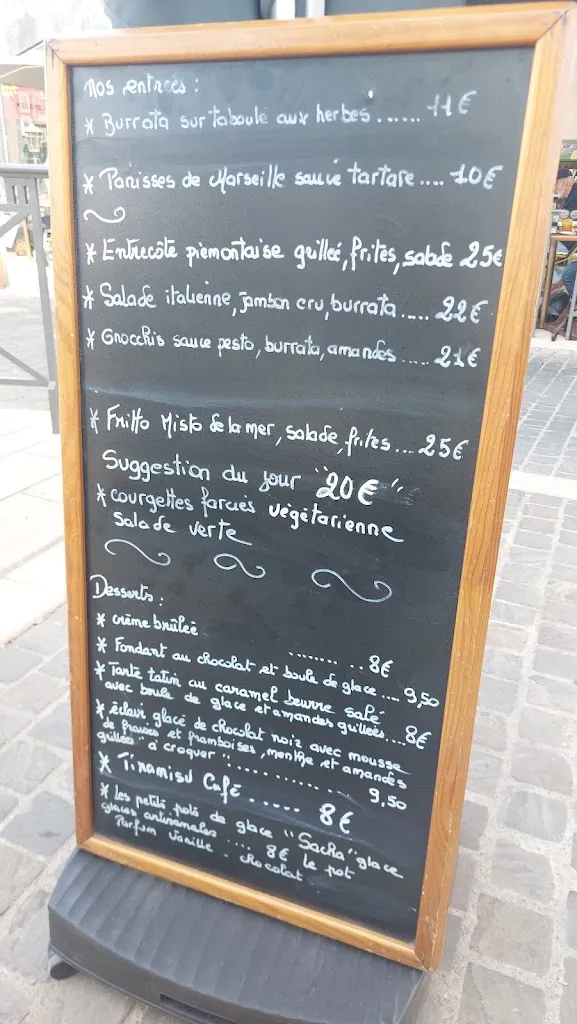 nos entrées :
* Burrata sur taboulé aux herbes ...... 11€
* Panisses de Marseille sauce tartare .... 10€
* Entrecôte piémontaise grillée, frites, salade 25€
* Salade italienne, jambon cru, burrata ..... 22€
* Gnocchis sauce pesto, burrata, amandes ..... 21€
* Fritto Misto de la mer, salade, frites ... 25€
Suggestion du jour "20€"
* courgettes farcies végétarienne
Salade verte
Desserts :
* crème brûlée
........ .. 8€
* Fondant au chocolat et boule de glace .... 9,50
* Tarte tatin au caramel beurre salé
avec boule de glace et amandes grillées .... 8€
* éclair glacé de chocolat noir avec mousse
de fraises et framboises, menthe et amandes
grillées "à croquer" ............
9,50
* Tiramisu Café ..... 8€
* Les petits pots de glace "Sacha" glace
glaces artisanales .... 8€ le pot
Parfum Vanille - chocolat